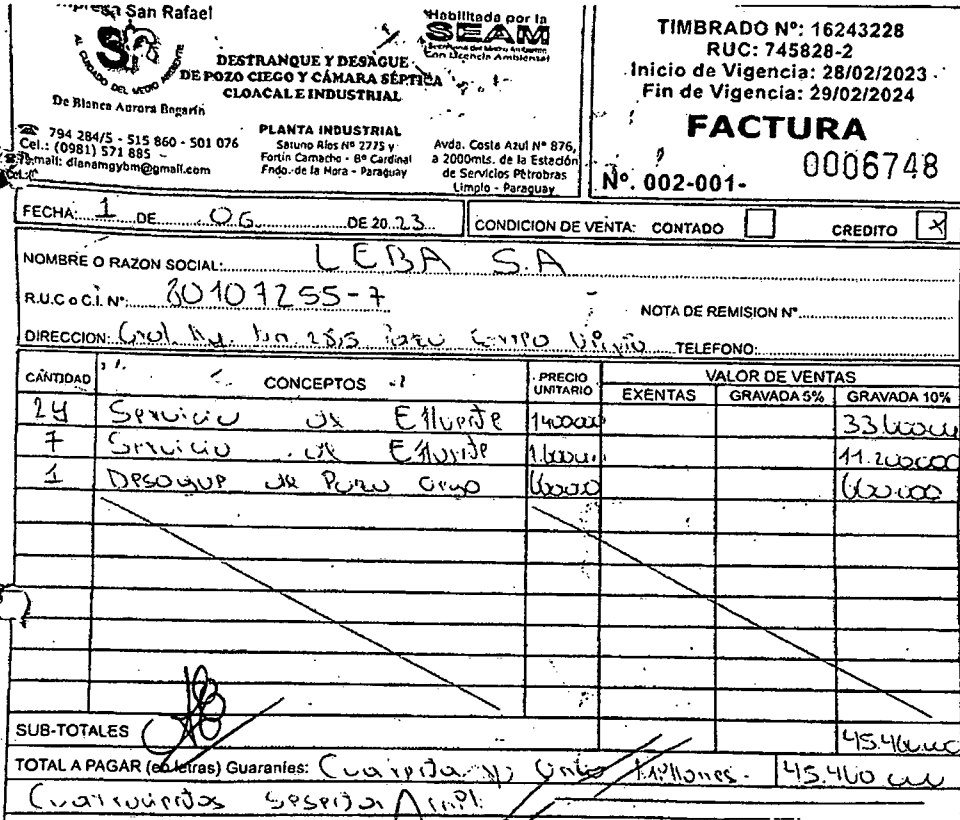 Empresa San Rafael
AL CUIDADO DEL MEDIO AMBIENTE
De Blanca Aurora Bogarín
DESTRANQUE Y DESAGUE
DE POZO CIEGO Y CÁMARA SÉPTICA
CLOACAL E INDUSTRIAL
Habilitada por la
SEAM
Secretaría del Medio Ambiente
Con Licencia Ambiental
794 284/5 - 515 860 - 501 076
Cel.: (0981) 571 885
E-mail: dianamgybm@gmail.com
PLANTA INDUSTRIAL
Saturio Ríos Nº 2775 y
Fortín Camacho - Bº Cardinal
Fndo. de la Mora - Paraguay
Avda. Costa Azul Nº 876,
a 2000mts. de la Estación
de Servicios Petrobras
Limpio - Paraguay
TIMBRADO Nº: 16243228
RUC: 745828-2
Inicio de Vigencia: 28/02/2023
Fin de Vigencia: 29/02/2024
FACTURA
Nº. 002-001- 0006748
FECHA: 1 DE 06 DE 2023
CONDICION DE VENTA: CONTADO CREDITO X
NOMBRE O RAZON SOCIAL: LEBA S.A
R.U.C o C.I. Nº: 80107255-7 NOTA DE REMISION Nº
DIRECCION: TELEFONO:
CANTIDAD CONCEPTOS PRECIO UNITARIO VALOR DE VENTAS
EXENTAS GRAVADA 5% GRAVADA 10%
24 Servicio de Efluente 1400000 33.600000
7 Servicio de Efluente 1.600000 11.200000
1 Desague de Pozo Ciego 660000 660.000
SUB-TOTALES 45.460.000
TOTAL A PAGAR (en letras) Guaraníes: Cuarenta y Cinco Millones 45.460 000
Cuatrocientos Sesenta mil